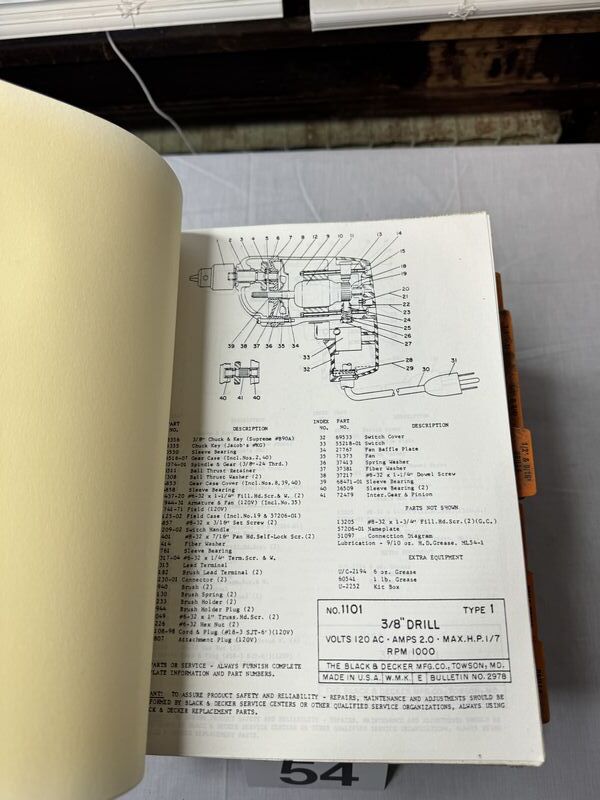 2 3 4 5 6 7 8 9 12 9 10 11 13 14
15
18
19
20
21
22
23
24
25
26
27
39 38 37 36 35 34 33
32
28
29
30
31
40 41 40
PART NO. DESCRIPTION
3/8" Chuck & Key (Supreme #890A)
Chuck Key (Jacob's #KG)
Sleeve Bearing
Gear Case (Incl.Nos.2,40)
Spindle & Gear (3/8"-24 Thrd.)
Ball Thrust Retainer
Ball Thrust Washer (2)
Gear Case Cover (Incl.Nos.8,39,40)
Sleeve Bearing
#8-32 x 1-1/4" Fill.Hd.Scr.& W. (2)
Armature & Fan (120V) (Incl.No.35)
Field (120V)
Field Case (Incl.No.19 & 37206-01)
#8-32 x 3/16" Set Screw (2)
Switch Handle
#8-32 x 7/16" Pan Hd.Self-Lock Scr.(2)
Fiber Washer
Sleeve Bearing
#6-32 x 1/4" Term.Scr. & W.
Lead Terminal
Brush Lead Terminal (2)
Connector (2)
Brush (2)
Brush Spring (2)
Brush Holder (2)
Brush Holder Plug (2)
#6-32 x 1" Truss.Hd.Scr. (2)
#6-32 Hex Nut (2)
Cord & Plug (#18-3 SJT-6')(120V)
Attachment Plug (120V)
INDEX NO. PART NO. DESCRIPTION
32 69533 Switch Cover
33 55218-01 Switch
34 27767 Fan Baffle Plate
35 71373 Fan
36 37413 Spring Washer
37 37381 Fiber Washer
38 37217 #8-32 x 1-1/4" Dowel Screw
39 68471-01 Sleeve Bearing
40 36509 Sleeve Bearing (2)
41 72479 Inter.Gear & Pinion
PARTS NOT SHOWN
13205 #8-32 x 1-3/4" Fill.Hd.Scr.(2)(G.C.)
57206-01 Nameplate
51097 Connection Diagram
Lubrication - 9/10 oz. M.D.Grease, ML54-1
EXTRA EQUIPMENT
U/C-2194 6 oz. Grease
60541 1 lb. Grease
U-2252 Kit Box
NO. 1101 TYPE 1
3/8" DRILL
VOLTS 120 AC - AMPS 2.0 - MAX. H.P. 1/7
RPM 1000
THE BLACK & DECKER MFG. CO., TOWSON, MD.
MADE IN U.S.A. W.M.K. E BULLETIN NO. 2978
PARTS OR SERVICE - ALWAYS FURNISH COMPLETE
PLATE INFORMATION AND PART NUMBERS.
TO ASSURE PRODUCT SAFETY AND RELIABILITY - REPAIRS, MAINTENANCE AND ADJUSTMENTS SHOULD BE
FORMED BY BLACK & DECKER SERVICE CENTERS OR OTHER QUALIFIED SERVICE ORGANIZATIONS, ALWAYS USING
& DECKER REPLACEMENT PARTS.
54